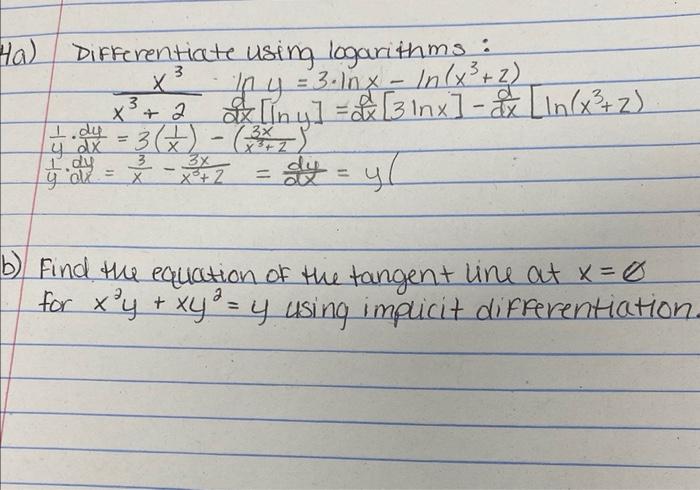 4a) Differentiate using logarithms :
x³ / x³ + 2   ln y = 3·ln x - ln(x³+2)
d/dx [ln y] = d/dx [3 ln x] - d/dx [ln(x³+2)
1/y · dy/dx = 3(1/x) - (3x/x³+2)
1/y · dy/dx = 3/x - 3x/x³+2 = dy/dx = y(
b) Find the equation of the tangent line at x = 0
for x²y + xy² = y using implicit differentiation.